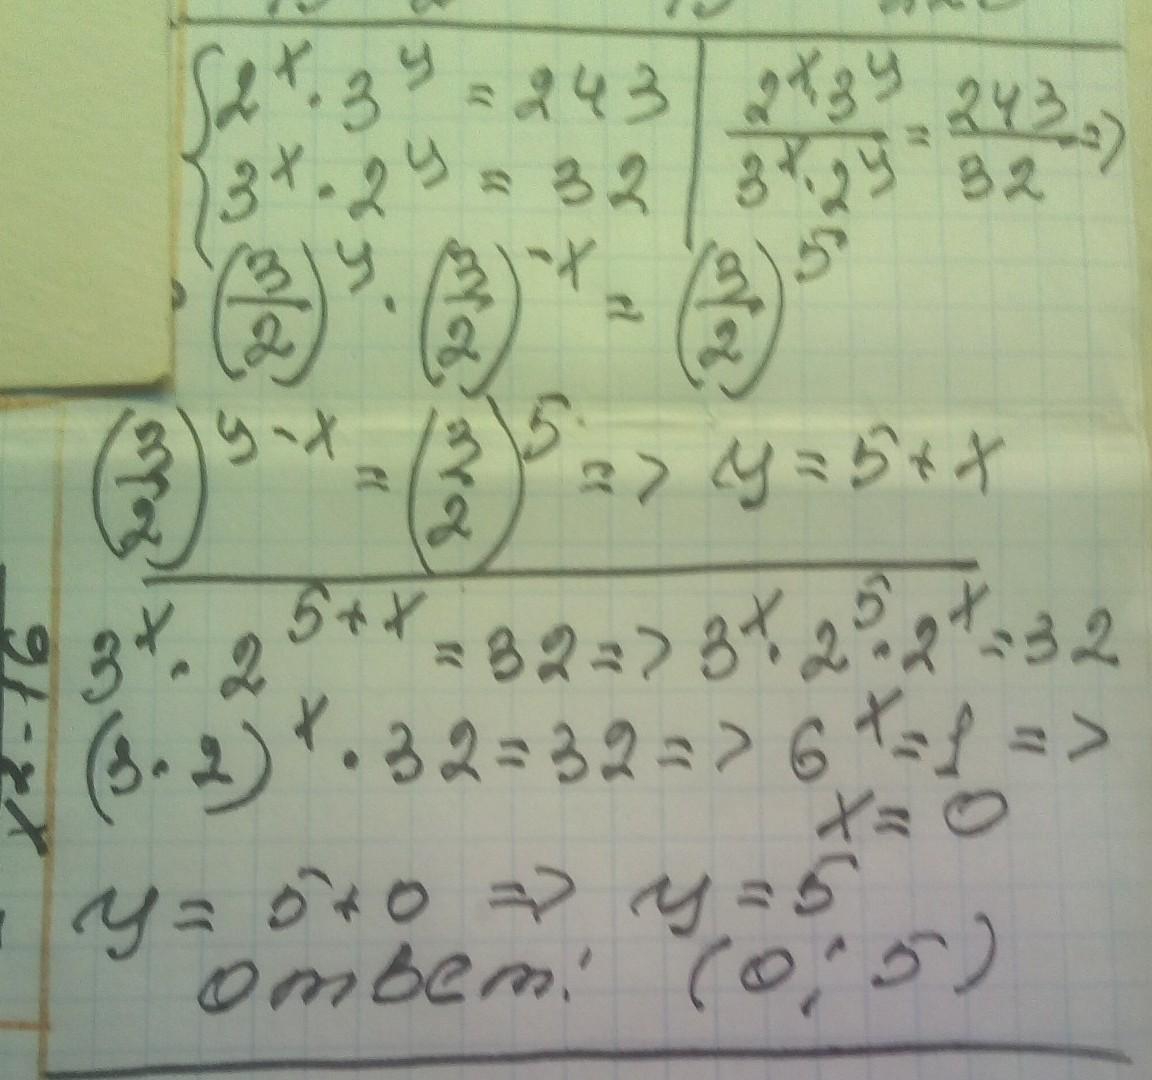 {2^x · 3^y = 243 | (2^x · 3^y)/(3^x · 2^y) = 243/32 =>
3^x · 2^y = 32
(3/2)^y · (3/2)^-x = (3/2)^5
(3/2)^y-x = (3/2)^5 => y = 5 + x
3^x · 2^5+x = 32 => 3^x · 2^5 · 2^x = 32
(3 · 2)^x · 32 = 32 => 6^x = 1 =>
x = 0
y = 5 + 0 => y = 5
ответ: (0; 5)